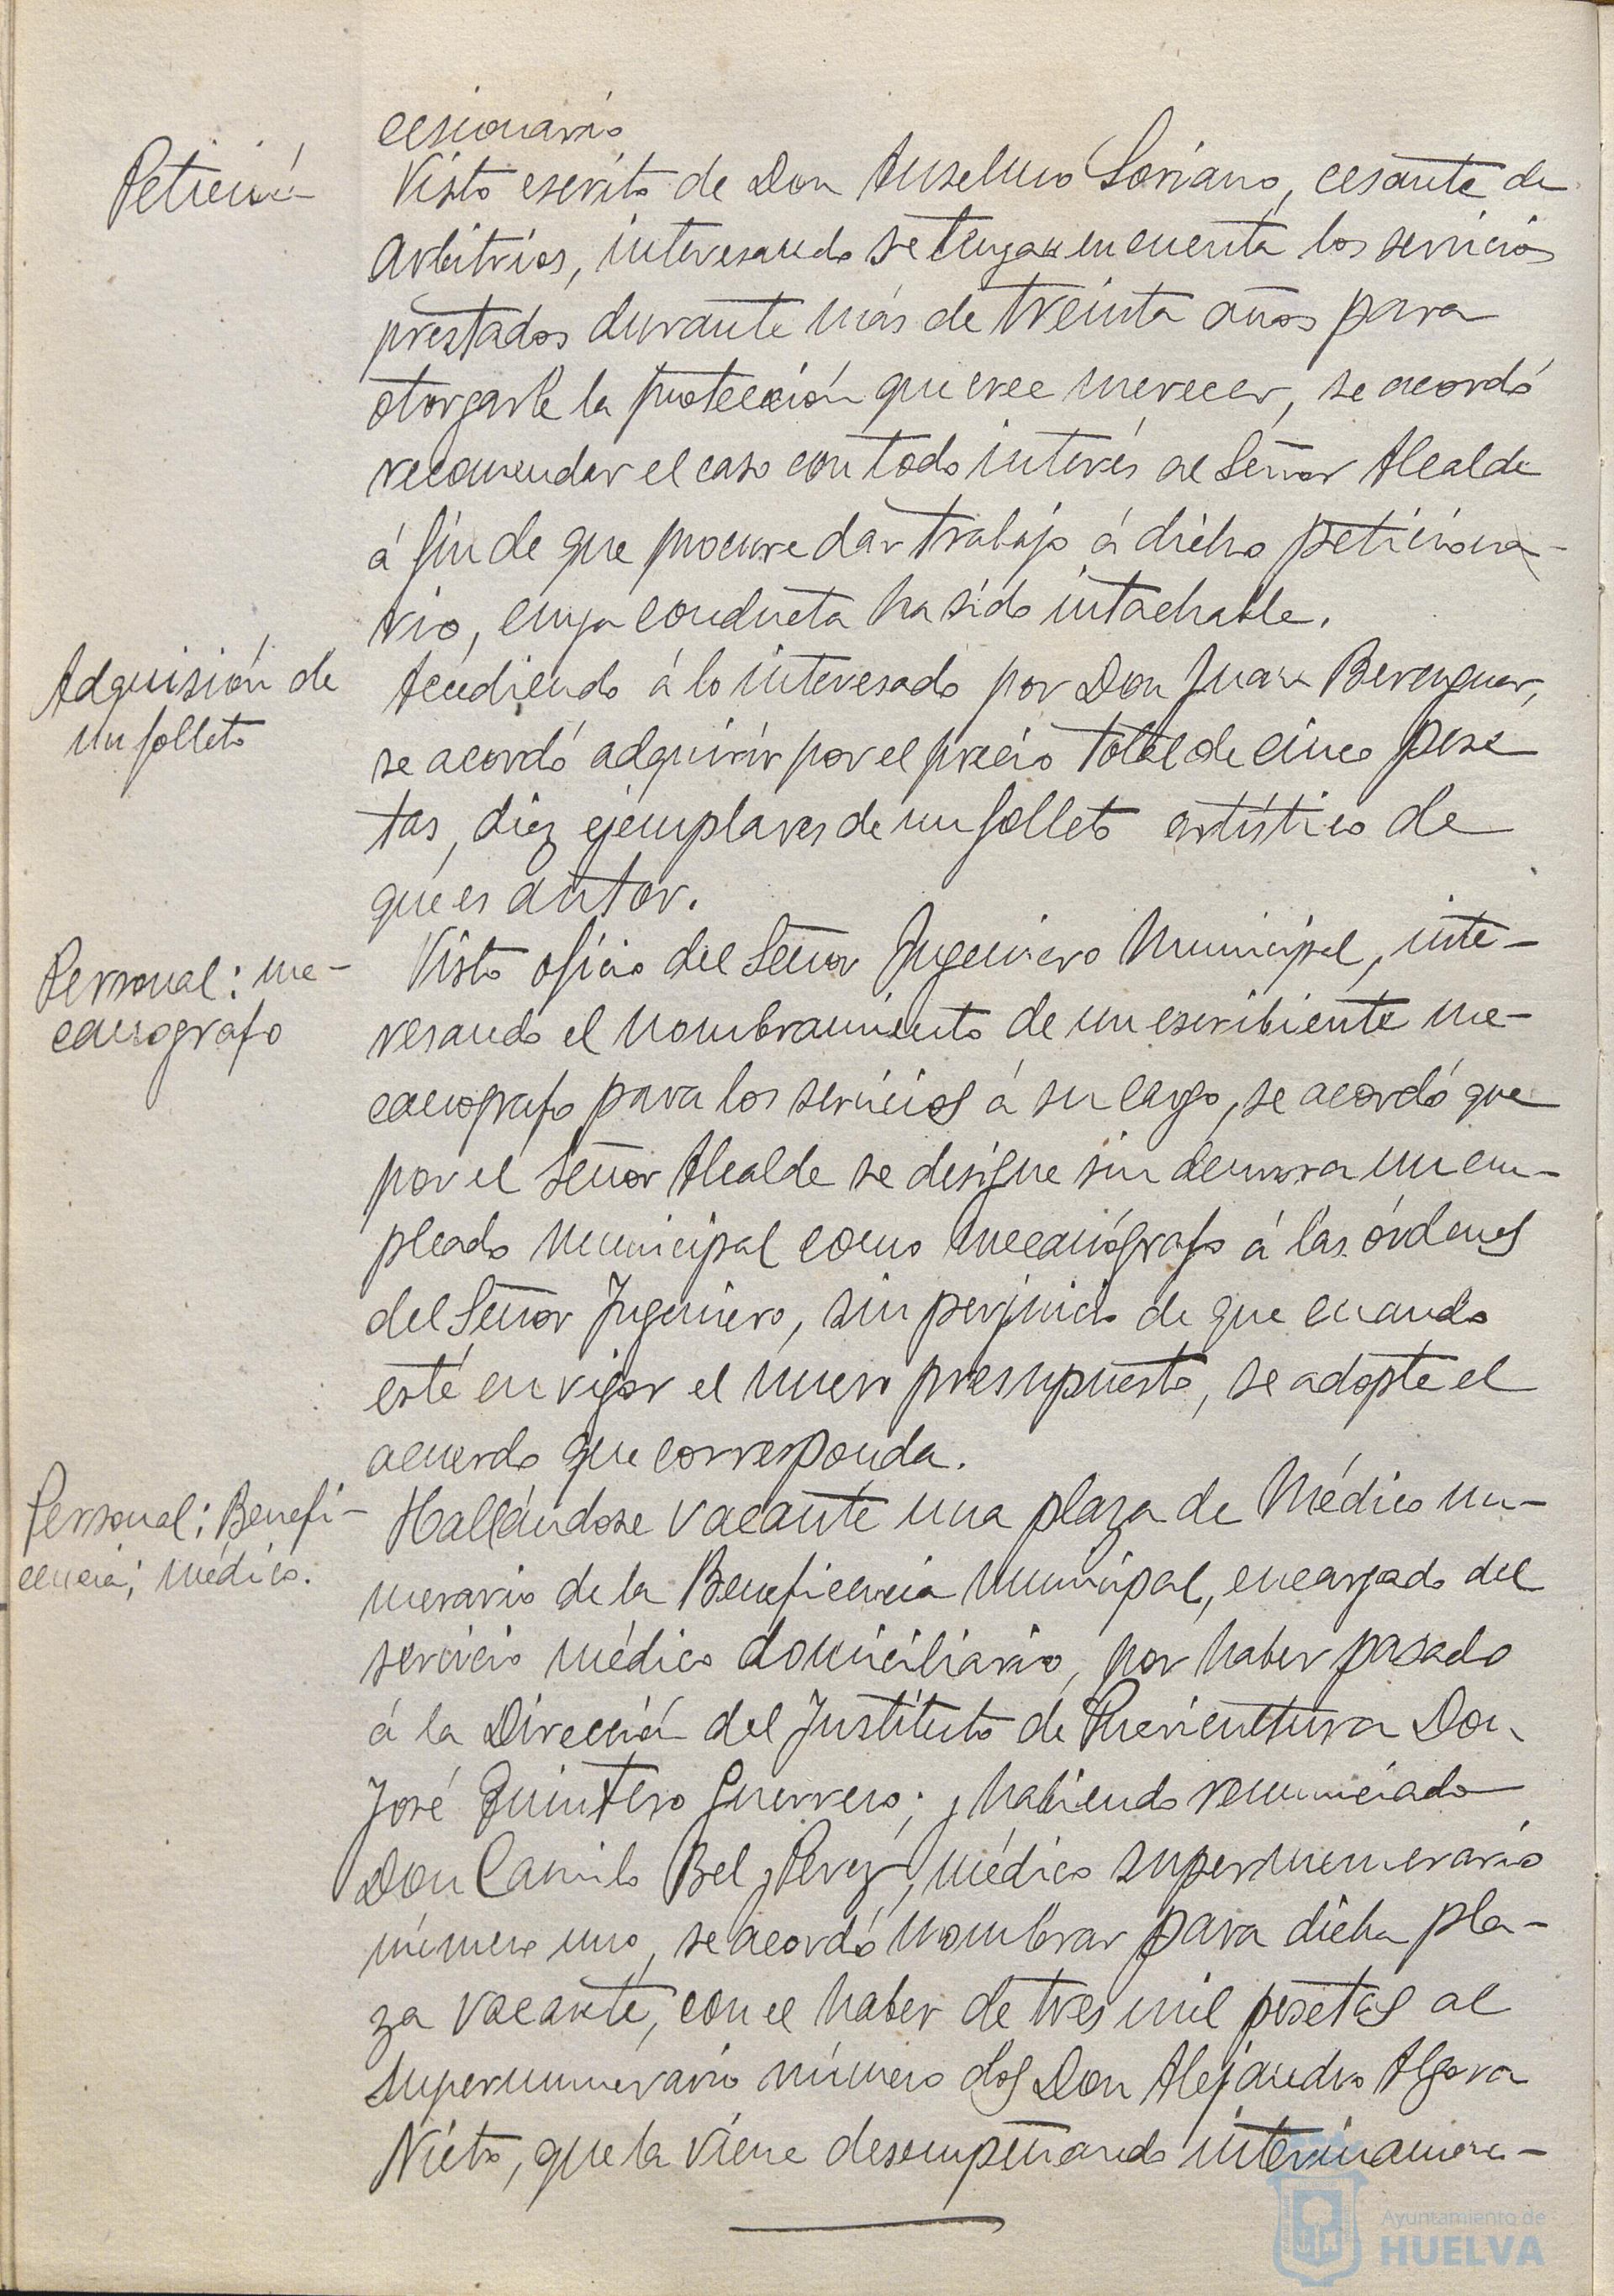 cesionario
Petición
Visto escrito de Don Anselmo Soriano, cesante de
Arbitrios, interesando se tengan en cuenta los servicios
prestados durante más de treinta años para
otorgarle la protección que cree merecer, se acordó
recomendar el caso con todo interés al Señor Alcalde
á fin de que procure dar trabajo á dicho peticiona-
rio, cuya conducta ha sido intachable.
Adquisión de
un folleto
Accediendo á lo interesado por Don Juan Berenguer,
se acordó adquirir por el precio total de cinco pese
tas, diez ejemplares de un folleto artístico de
que es autor.
Personal: me-
canografo
Visto oficio del Señor Ingeniero Municipal, inte-
resando el nombramiento de un escribiente me-
canografo para los servicios á su cargo, se acordó que
por el Señor Alcalde se designe sin demora un em-
pleado municipal como mecanógrafo á las órdenes
del Señor Ingeniero, sin perjuicio de que cuando
esté en vigor el nuevo presupuesto, se adopte el
acuerdo que corresponda.
Personal; Benefi-
cencia; médico.
Hallándose vacante una plaza de Médico nu-
merario de la Beneficencia municipal, encargado del
servicio médico domiciliario, por haber pasado
á la Dirección del Instituto de Puericultura Don
José Quintero Guerrero; y habiendo renunciado
Don Camilo Bel y Perez, médico supernumerario
número uno, se acordó nombrar para dicha pla-
za vacante, con el haber de tres mil pesetas al
supernumerario número dos Don Alejandro Algora
Nieto, que la viene desempeñando interinamen-
Ayuntamiento de
HUELVA